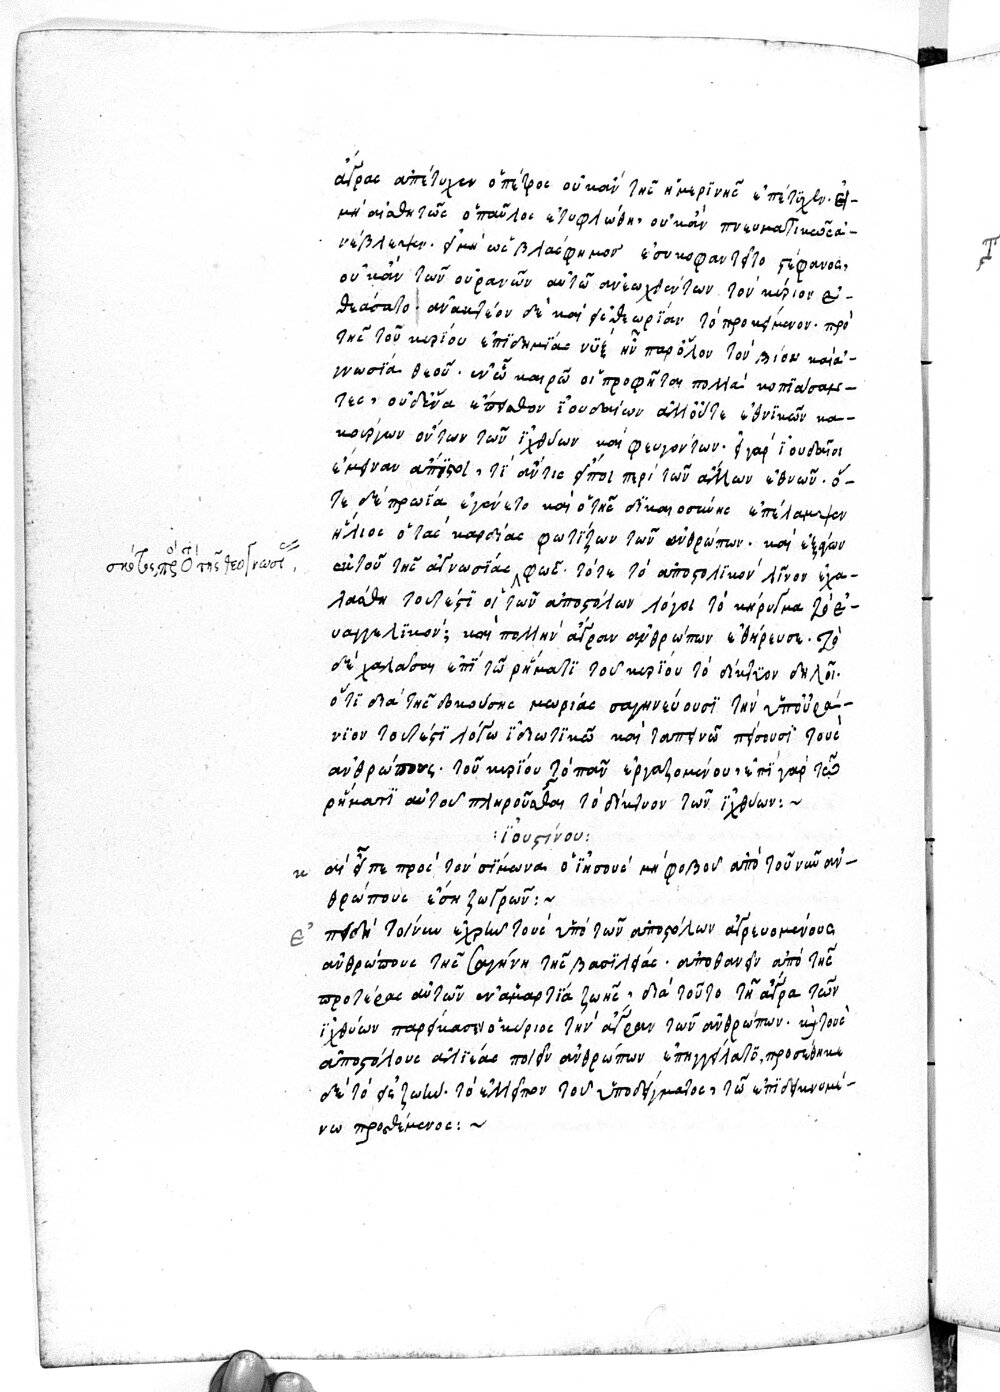 ἄγρας ἀπέτυχεν ὁ πέτρος οὐκἂν τῆς ἡμερϊνῆς ἐπέτϋχεν· εἰ
μὴ αἰσθητῶς ὁ παῦλος ἐτυφλώθη, οὐκἂν πνευματικῶς ἀ-
νέβλεψεν· εἰ μὴ ὡς βλάσφημος ἐσυκοφαντεῖτο στέφανος,
οὐκἂν τῶν οὐρανῶν αὐτῶ ἀνεωχθέντων τὸν κύριον ἐ-
θεάσατο· ἀνακτέον δὲ καὶ εἰς θεωρΐαν τὸ προκείμενον· πρὸ
τῆς τοῦ κυρίου ἐπϊδημΐας νὺξ ἦν παρόλον τὸν βίον καὶ ἀ-
γνωσΐα θεοῦ· ἐν ὧ καιρῶ οἱ προφῆται πολλὰ κοπϊάσαν-
τες, οὐδένα ἔπειθον ἰουδαίων ἀλλοὔτε ἐθνϊκῶν κα-
κούργων ὄντων τῶν ϊχθύων καὶ φευγόντων· εἰ γὰρ ϊουδαῖοι
ἔμειναν ἄπιστοι, τί ἄν τις εἴποι περὶ τῶν ἄλλων ἐθνῶν· ὅ-
τε δὲ πρωΐα ἐγένετο καὶ ὁ τῆς δϊκαιοσύνης ἐπέλαμψεν
ἥλιος ὁ τὰς καρδίας φωτΐζων τῶν ἀνθρώπων· καὶ
αὐτοῦ τῆς ἀγνωσΐας φῶς· τότε τὸ ἀποστολϊκὸν λῖνον ἐχα-
λάσθη τουτέστϊ οἱ τῶν ἀποστόλων λόγοι τὸ κήρυγμα τὸ εὐ-
υαγγελϊκόν; καὶ πολλὴν ἄγραν ἀνθρώπων ἐθήρευσε· τὸ
δὲ χαλάσαι ἐπὶ τῶ ρήματϊ τοῦ κυρίου τὸ δίκτϋον δηλοῖ·
ὅτϊ διὰ τῆς δοκούσης μωρίας σαγηνεύουσϊ τὴν ὑπουρά-
νϊον τουτέστϊ λόγω ϊδιωτϊκῶ καὶ ταπεινῶ πείσουσϊ τοὺς
ἀνθρώπους· τοῦ κυρίου τὸ πᾶν ἐργαζομένου, ἐπὶ γὰρ τῶ
ρήματϊ αὐτοῦ πληροῦσθαι τὸ δίκτυον τῶν ϊχθύων:~
:ϊουστίνου:
καὶ εἶπε πρὸς τὸν σίμωνα ὁ ϊησοῦς μὴ φοβοῦ ἀπὸ τοῦ νῦν ἀν-
θρώπους ἔση ζωγρῶν:~
ἐπειδὴ τοίνυν ἐχρῆν τοὺς ὑπὸ τῶν ἀποστόλων ἀγρευομένους
ἀνθρώπους τῆς σαγήνη τῆς βασϊλείας· ἀποθανεῖν ἀπὸ τῆς
προτέρας αὐτῶν ἐν ἁμαρτία ζωῆς, διὰ τοῦτο τῆ ἄγρα τῶν
ϊχθύων παρείκασεν ὁ κύριος τὴν ἄγραν τῶν ἀνθρώπων· καὶ τοὺς
ἀποστόλους ἁλϊέας ποιεῖν ἀνθρώπων ἐπηγγείλατο, προσέθηκε
δὲ τὸ εἰς ζωὴν· τὸ ἐλλεῖπον τοῦ ὑποδείγματος, τῶ ἐπϊδεικνυμέ-
νω προσθέμενος:~